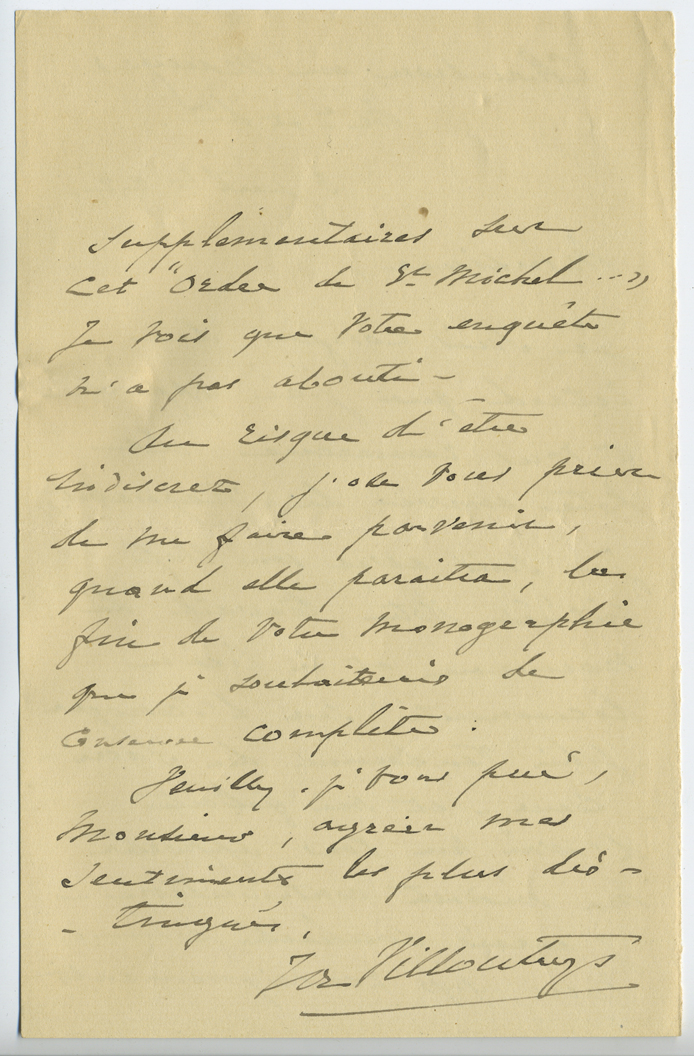 supplémentaires sur
cet "Ordre de St Michel ..."
Je vois que votre enquête
n'a pas abouti -
Au risque d'être
indiscret, j'ose vous prier
de me faire parvenir,
quand elle paraîtra, la
fin de votre monographie
que je souhaiterais de
conserver complète.
Veuillez, je vous prie,
Monsieur, agréer mes
sentiments les plus dis-
- tingués.
Villoutreys